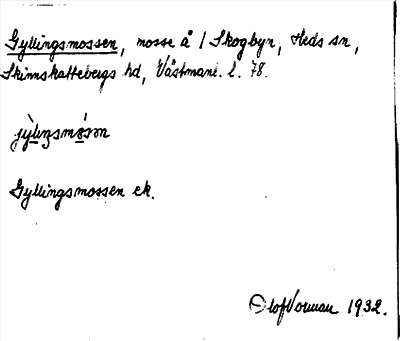 Gyllingsmossen, mosse å 1 Skogbyn, Heds sn,
Skinnskattebergs hd, Västmanl. l. 78.
jỳliŋsmósən
Gyllingsmossen ek.
Olof Vorman 1932.